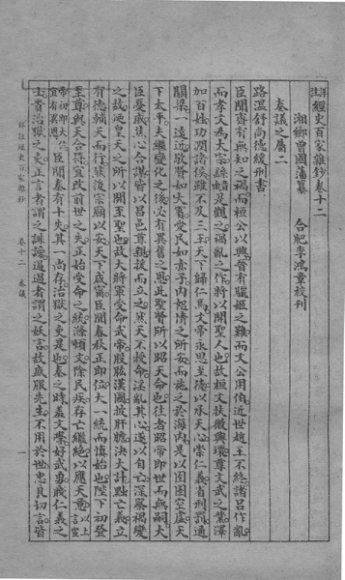 詳註經史百家雜鈔卷十二
湘鄉曾國藩纂　合肥李鴻章校刊
奏議之屬二
路溫舒尚德緩刑書
臣聞齊有無知之禍而桓公以興晉有驪姬之難而文公用伯近世趙王不終諸呂作亂
而孝文為大宗繇是觀之禍亂之作將以開聖人也故桓文扶微興壞尊文武之業澤
加百姓功潤諸侯雖不及三王天下歸仁焉文帝永思至德以承天心崇仁義省刑罰通
關梁一遠近敬賢如大賓愛民如赤子內恕情之所安而施之於海內是以囹圄空虛天
下太平夫繼變化之後必有異舊之恩此賢聖所以昭天命也往者昭帝即世而無嗣大
臣憂戚焦心合謀皆以昌邑尊親援而立之然天不授命淫亂其心遂以自亡深察禍變
之故乃皇天之所以開至聖也故大將軍受命武帝股肱漢國披肝膽決大計黜亡義立
有德輔天而行然後宗廟以安天下咸寧臣聞春秋正即位大一統而慎始也陛下初登
至尊與天合符宜改前世之失正始受命之統滌煩文除民疾存亡繼絕以應天意以上言宣
帝初即大位宜有異恩臣聞秦有十失其一尚存治獄之吏是也秦之時羞文學好武勇賤仁義之
士貴治獄之吏正言者謂之誹謗遏過者謂之妖言故盛服先生不用於世忠良切言皆
詳註經史百家雜鈔　卷十二　奏議　一